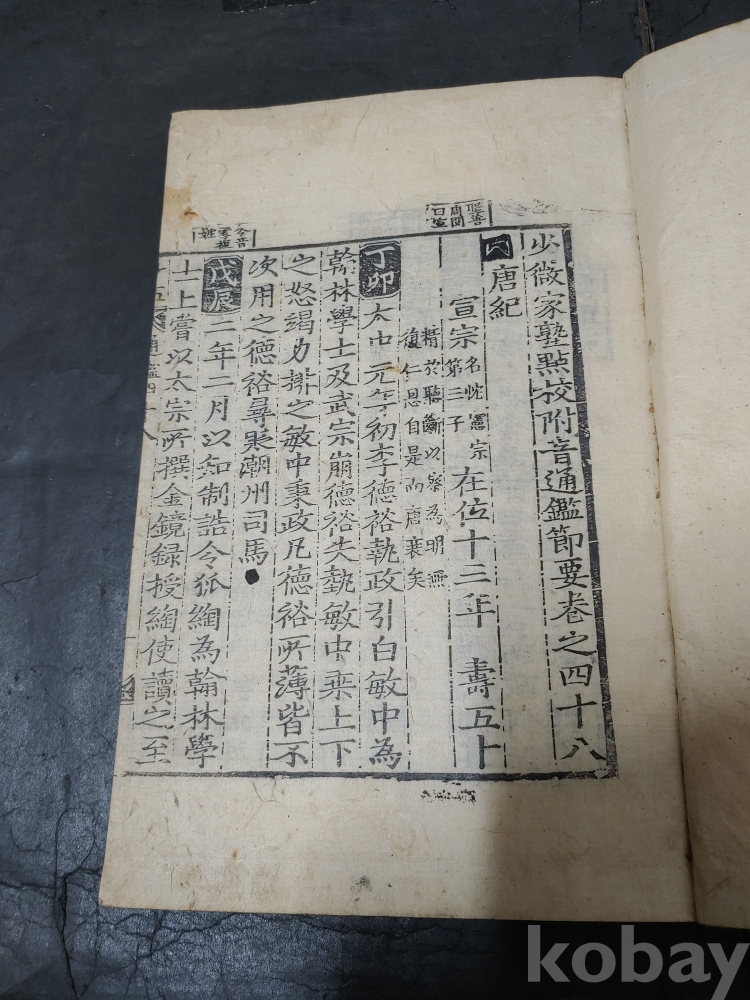 少微家塾點校附音通鑑節要卷之四十八
唐紀
宣宗 名忱憲宗第三子 在位十三年 壽五十
精於聽斷以察為明無
復仁恩自是而唐衰矣
丁卯 太中元年初李德裕執政引白敏中為
翰林學士及武宗崩德裕失執敏中乘上下
之怒竭力排之敏中秉政凡德裕所薄皆不
次用之德裕尋貶潮州司馬
戊辰 二年二月以知制誥令狐綯為翰林學
士上嘗以太宗所撰金鏡録授綯使讀之至
kobay